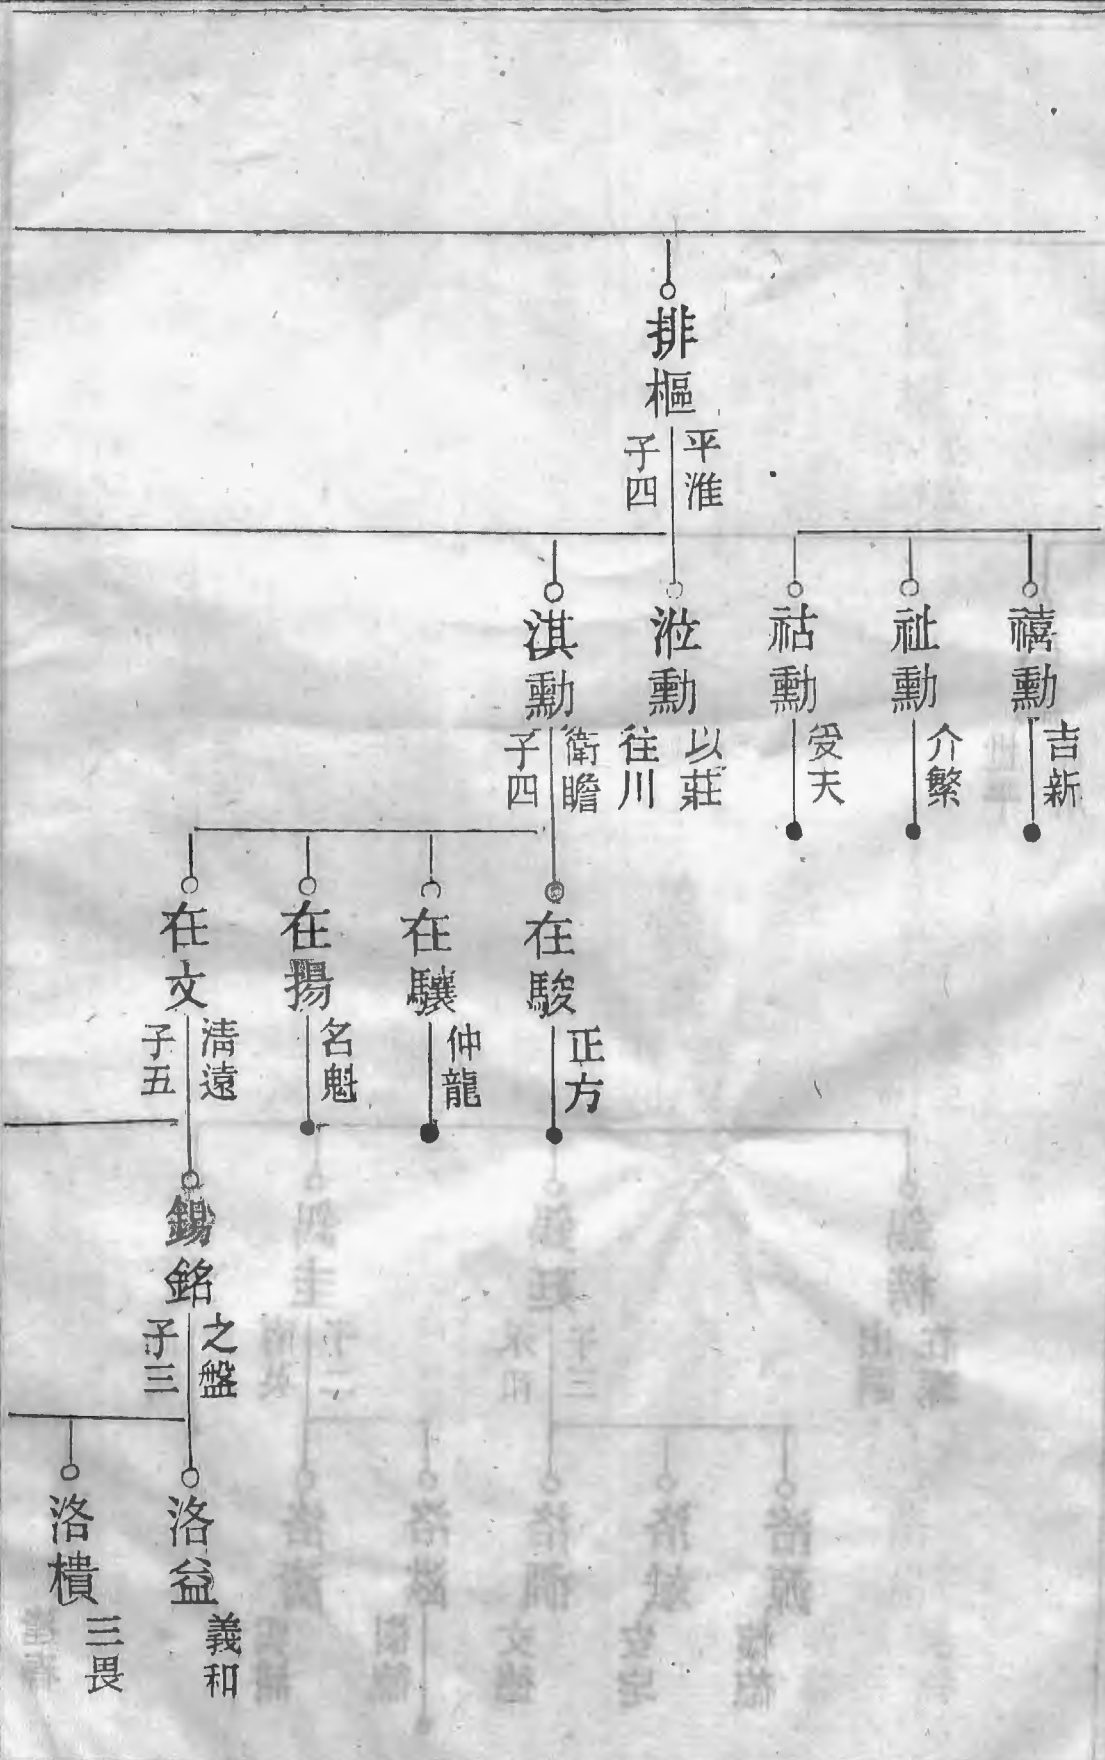 排樞
平淮
子四
禧勳
吉新
祉勳
介繁
祜勳
受天
涖勳
以莊
往川
淇勳
衛瞻
子四
在駿
正方
在驤
仲龍
在揚
名魁
在文
清遠
子五
錫銘
之盤
子三
洛益
義和
洛樻
三畏